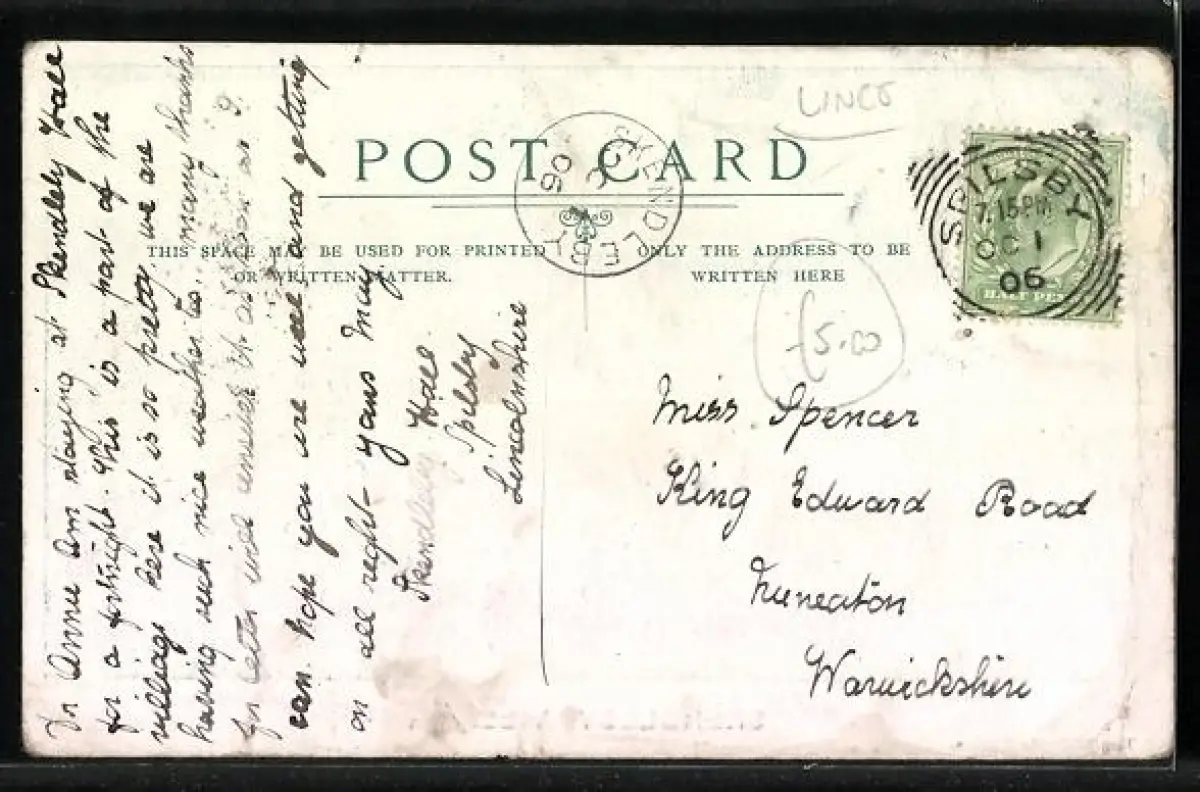 Dr Annie Am staying at Skendleby Hall
for a fortnight. This is a part of the
village here it is so pretty, we are
having such nice weather too. many thanks
for letter will answer it as soon as I
can. hope you are well and getting
on all right - yours May
Skendleby Hall
Spilsby
Lincolnshire
LINCS
POST CARD
THIS SPACE MAY BE USED FOR PRINTED
OR WRITTEN MATTER.
ONLY THE ADDRESS TO BE
WRITTEN HERE
SKENDLEBY
OC 1
06
SPILSBY
7.15 PM
OC 1
06
HALF PEN
£5.00
Miss Spencer
King Edward Road
Nuneaton
Warwickshire